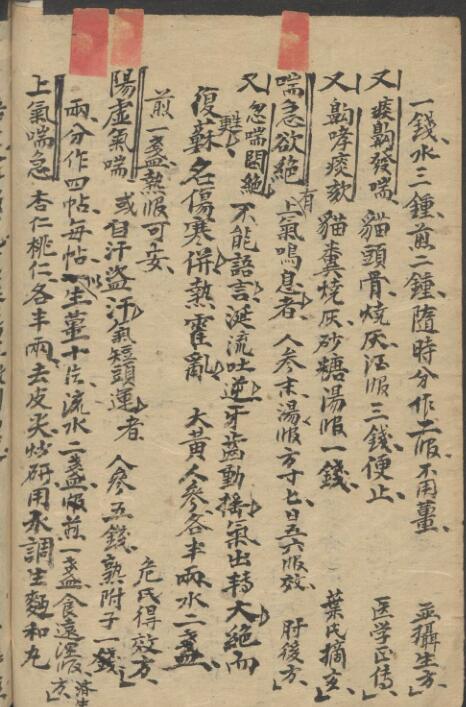 一錢、水三鍾、煎二鍾、隨時分作二服、不用薑、 並攝生方、
又 痰齁發喘、 貓頭骨燒灰、酒服三錢、便止 医学正傳、
又 齁哮痰欬 貓糞燒灰、砂糖湯服一錢、 葉氏摘玄、
喘急欲絶 上氣鳴息者、 人參末、湯服方寸匕、日五六服效、 肘後方、
又 忽喘悶絶 不能語言、涎流吐逆、牙齒動搖、氣出轉大、絶而
復蘇、名傷寒併熱霍亂、 大黃人參各半兩、水二盞、
煎一盞、熱服可安、 危氏得效方、
陽虛氣喘 或自汗盜汗、氣短頭運者、 人參五錢、熟附子一
兩、分作四帖、毎帖以生薑十片、流水二盞、煎一盞、食遠溫服、 濟生方、
上氣喘急 杏仁桃仁各半兩、去皮尖炒研、用水調生麵和丸